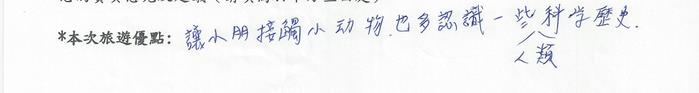 *本次旅遊優點: 讓小朋接觸小动物.也多認識一些人類科学歷史.